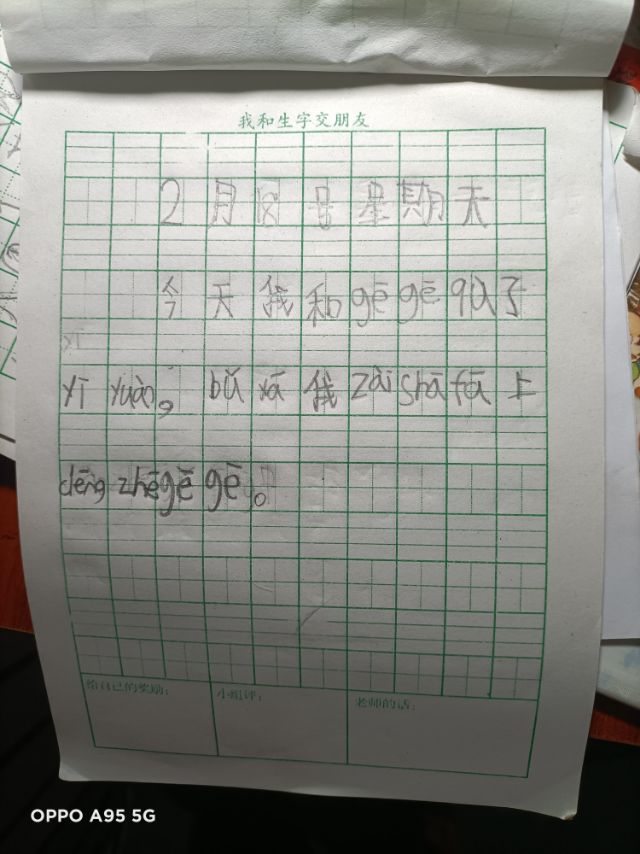 我和生字交朋友
2月18号星期天
今天我和gēgē qù了
yī
yī yuàn，bǔ yá 我 zài shā fā 上
dēng zhē gē gē。
给自己的奖励： 小组评： 老师的话：
OPPO A95 5G